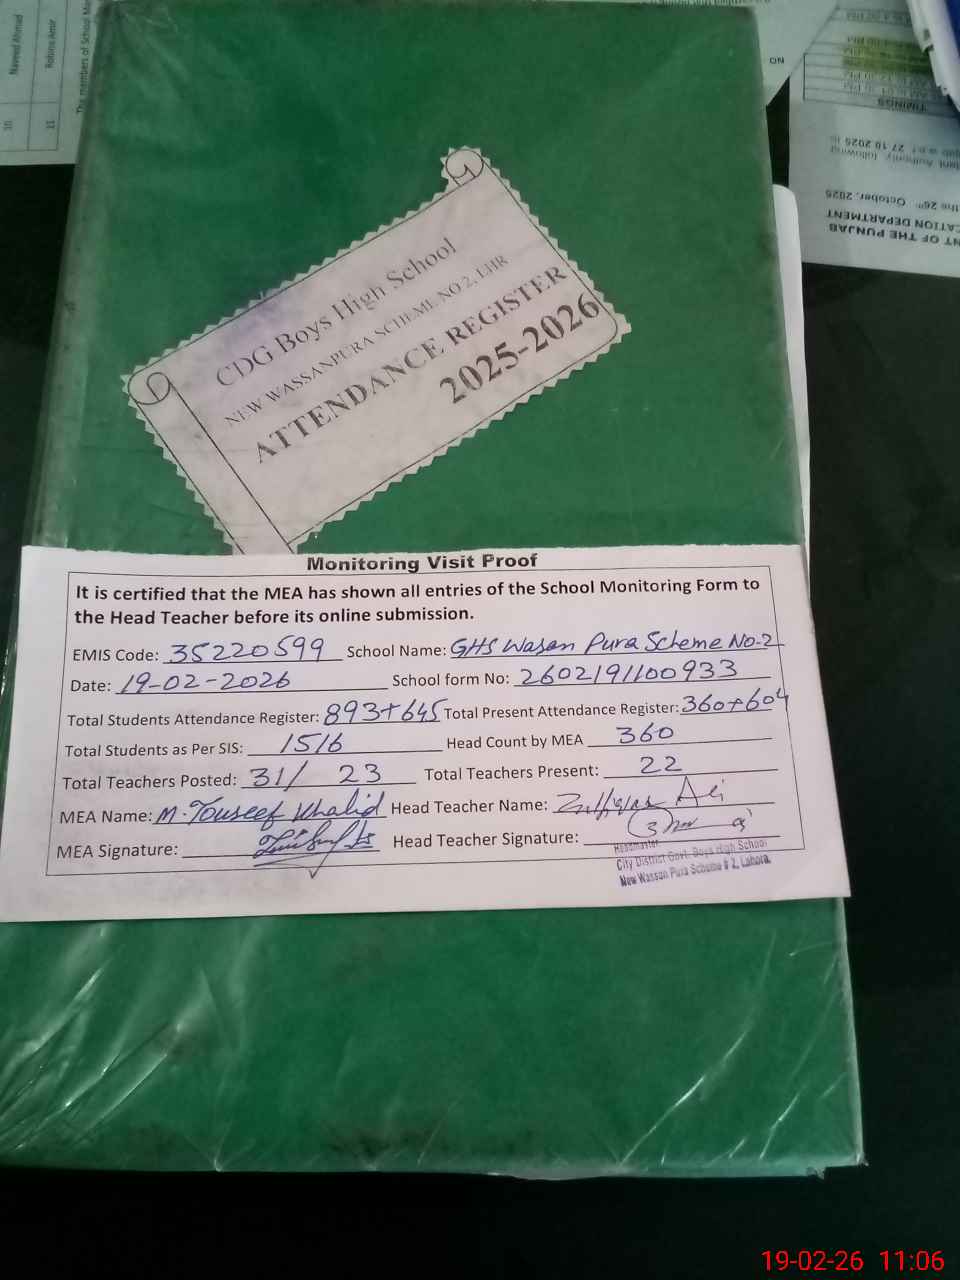 Naveed Ahmad
10
Robina Amir
11
The members of School
NO
TIMINGS
27.10.2025
the 26th October, 2025
CATION DEPARTMENT
NT OF THE PUNJAB
CDG Boys High School
NEW WASSANPURA SCHEME NO 2, LHR
ATTENDANCE REGISTER
2025-2026
Monitoring Visit Proof
It is certified that the MEA has shown all entries of the School Monitoring Form to
the Head Teacher before its online submission.
EMIS Code: 35220599 School Name: GHS Wasan Pura Scheme No-2
Date: 19-02-2026 School form No: 2602191100933
Total Students Attendance Register: 893+645 Total Present Attendance Register: 360+604
Total Students as Per SIS: 1516 Head Count by MEA 360
Total Teachers Posted: 31/ 23 Total Teachers Present: 22
MEA Name: M. Touseef Khalid Head Teacher Name: Zulfiqar Ali
MEA Signature: Head Teacher Signature:
Headmaster
City District Govt. Boys High School
New Wassan Pura Scheme # 2, Lahore.
19-02-26 11:06